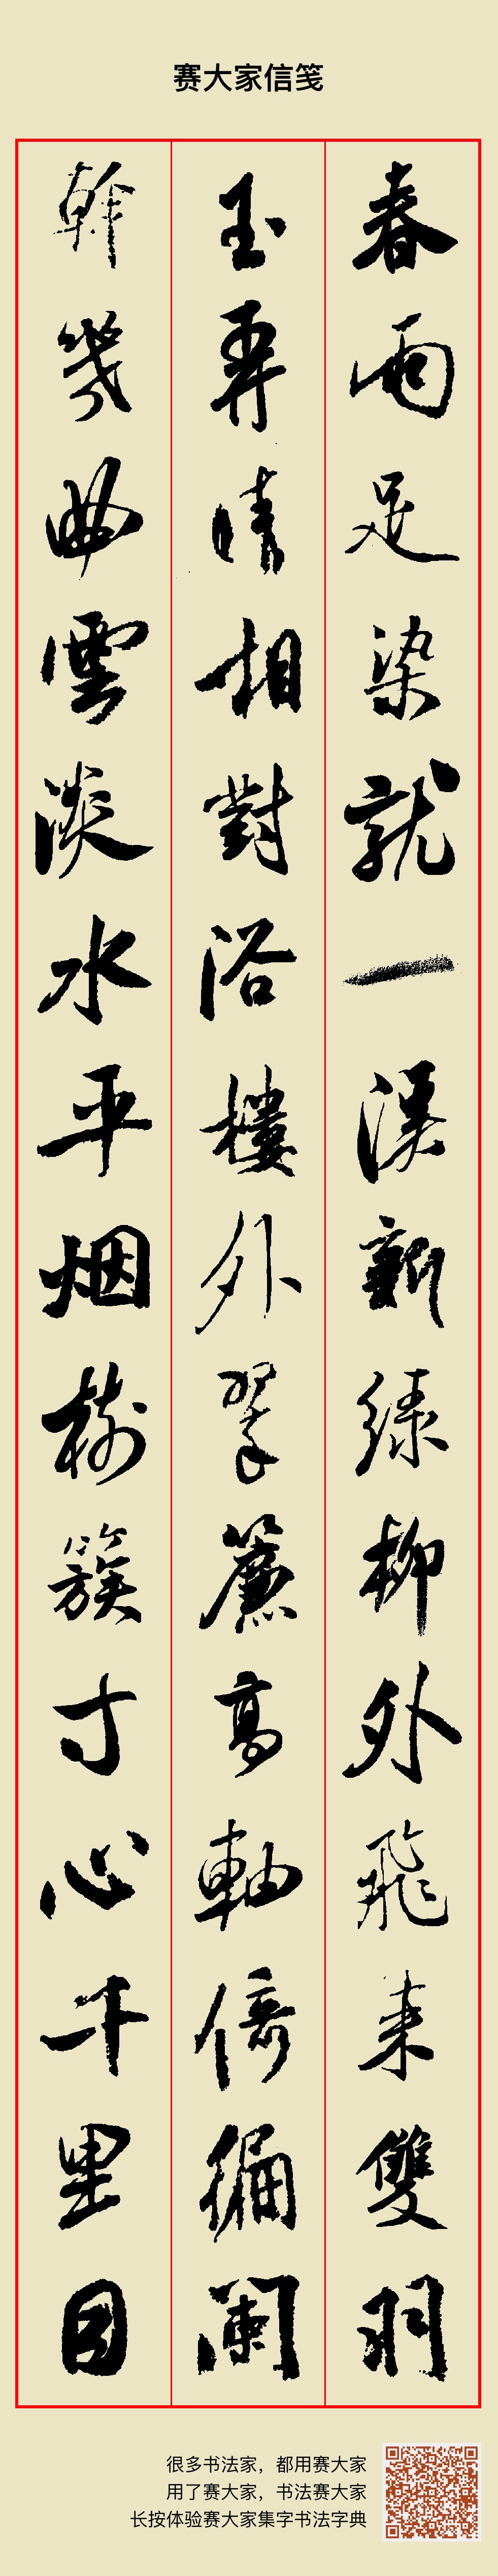 赛大家信笺
春雨足染就一溪新綠柳外飛來雙羽
玉弄晴相對浴樓外翠簾高軸倚徧闌
幹幾曲雲淡水平烟樹簇寸心千里目
很多书法家，都用赛大家
用了赛大家，书法赛大家
长按体验赛大家集字书法字典